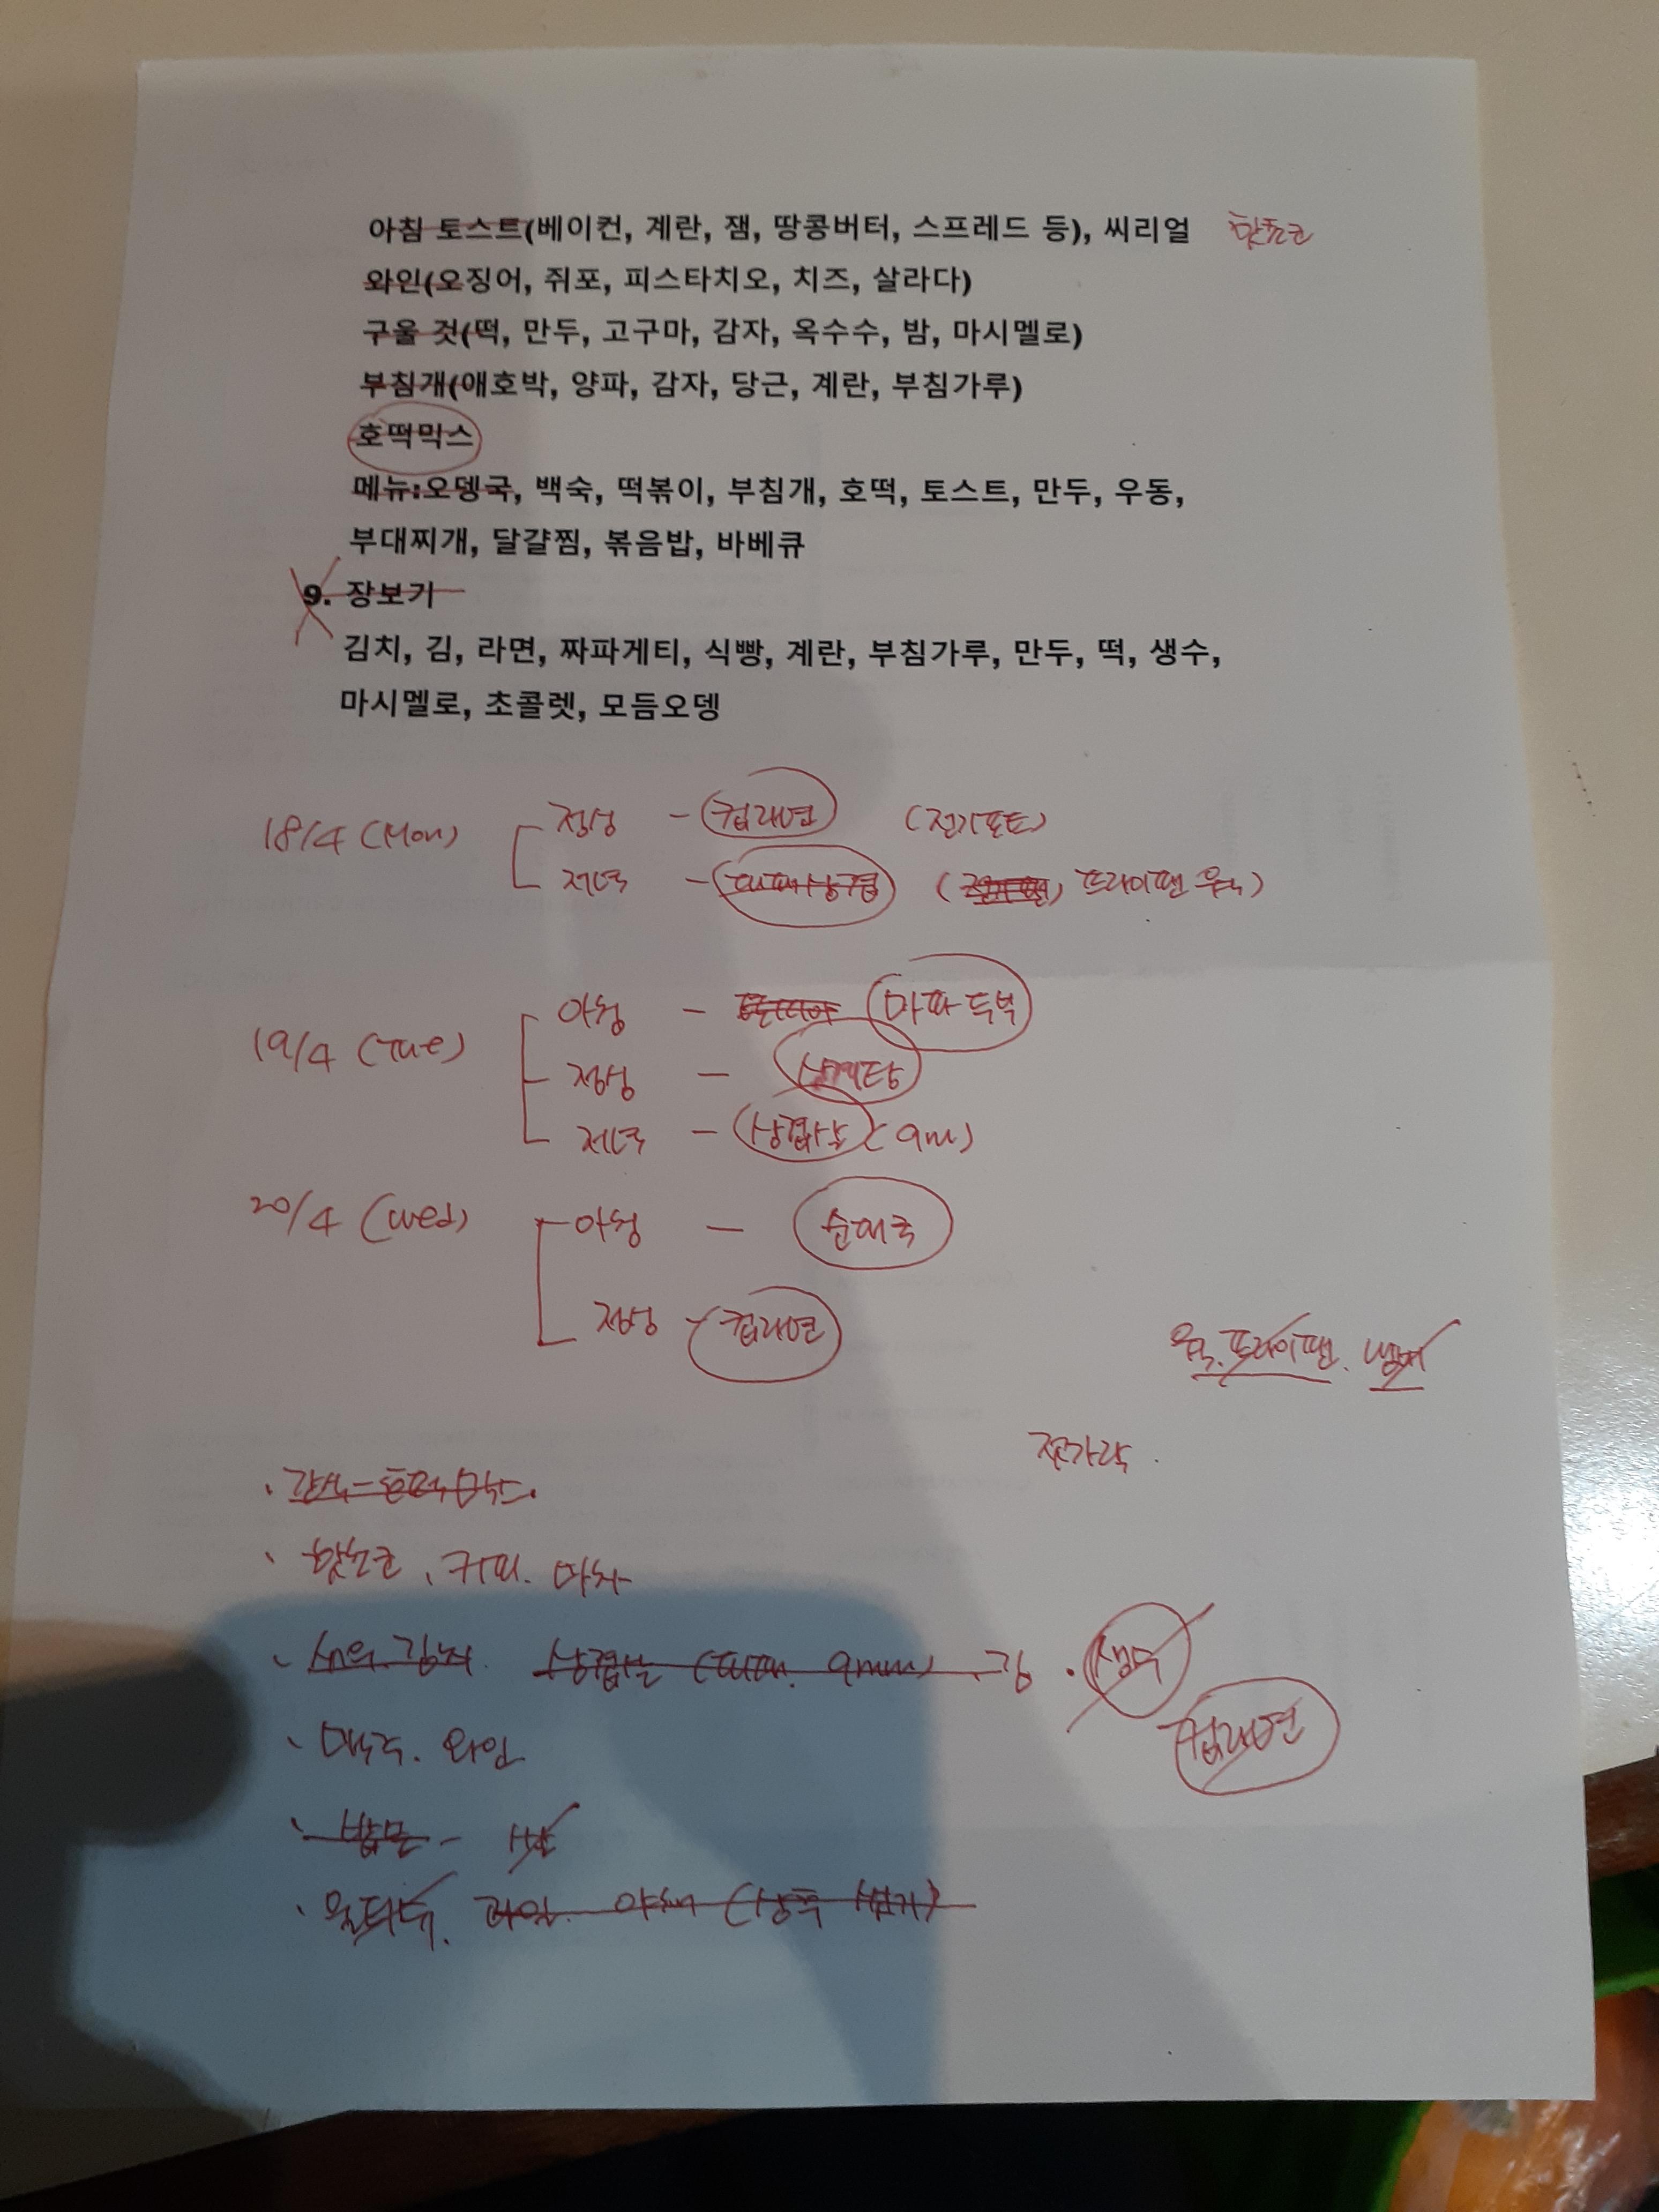 아침 토스트(베이컨, 계란, 잼, 땅콩버터, 스프레드 등), 씨리얼 핫초코
와인(오징어, 쥐포, 피스타치오, 치즈, 살라다)
구울 것(떡, 만두, 고구마, 감자, 옥수수, 밤, 마시멜로)
부침개(애호박, 양파, 감자, 당근, 계란, 부침가루)
호떡믹스
메뉴:오뎅국, 백숙, 떡볶이, 부침개, 호떡, 토스트, 만두, 우동,
부대찌개, 달걀찜, 볶음밥, 바베큐
9. 장보기
김치, 김, 라면, 짜파게티, 식빵, 계란, 부침가루, 만두, 떡, 생수,
마시멜로, 초콜렛, 모듬오뎅
18/4 (Mon) 점심 - 컵라면 (전기포트)
저녁 - 대패삼겹 ( 프라이팬 웍)
19/4 (Tue) 아침 - 마파두부
점심 - 삼계탕
저녁 - 삼겹살 (9m)
20/4 (Wed) 아침 - 순대국
점심 - 컵라면
웍. 프라이팬. 냄비
젓가락.
간식 - 호떡믹스.
핫초코, 커피. 마차
김치. 삼겹살 (대패. 9mm) . 김 . 생수
컵라면
맥주. 와인
밥 -
물티슈. 과일. 야채 (상추 )